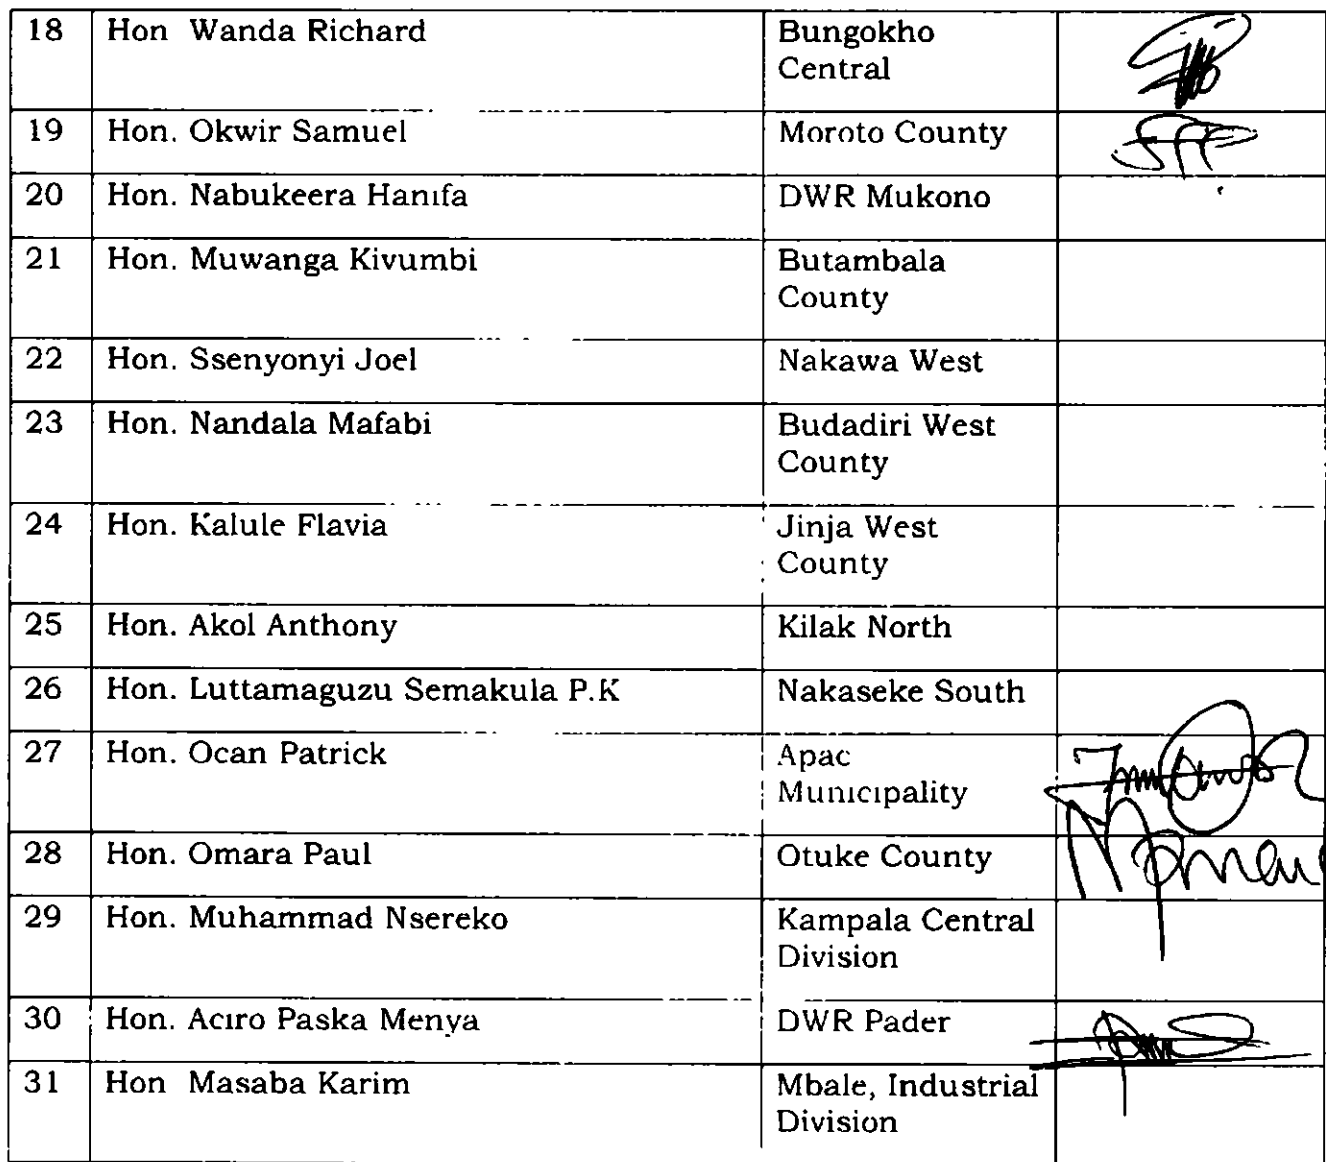 18 Hon Wanda Richard Bungokho
Central
19 Hon. Okwir Samuel Moroto County
20 Hon. Nabukeera Hanıfa DWR Mukono
21 Hon. Muwanga Kivumbi Butambala
County
22 Hon. Ssenyonyi Joel Nakawa West
23 Hon. Nandala Mafabi Budadiri West
County
24 Hon. Kalule Flavia Jinja West
County
25 Hon. Akol Anthony Kilak North
26 Hon. Luttamaguzu Semakula P.K Nakaseke South
27 Hon. Ocan Patrick Apac
Municipality
28 Hon. Omara Paul Otuke County
29 Hon. Muhammad Nsereko Kampala Central
Division
30 Hon. Aciro Paska Menya DWR Pader
31 Hon Masaba Karim Mbale, Industrial
Division